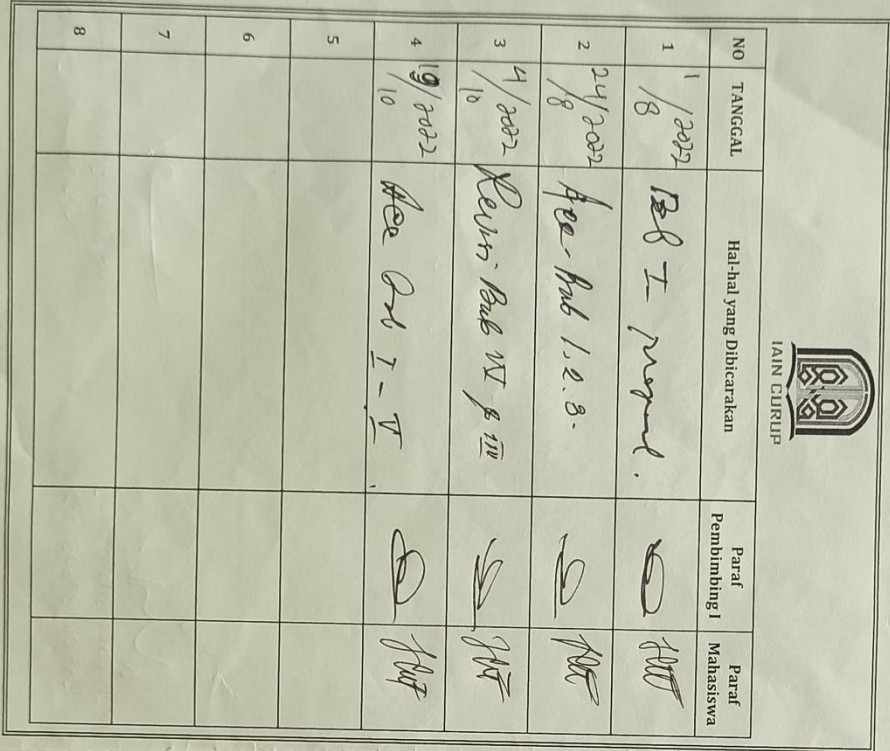 IAIN CURUP
NO TANGGAL Hal-hal yang Dibicarakan Paraf Pembimbing I Paraf Mahasiswa
1 1/8/2022 Bab I
2 24/8/2022 Acc Bab 1, 2, 3.
3 4/10/2022 Revisi Bab IV
4 19/10/2022 Acc Bab I - V.
5
6
7
8